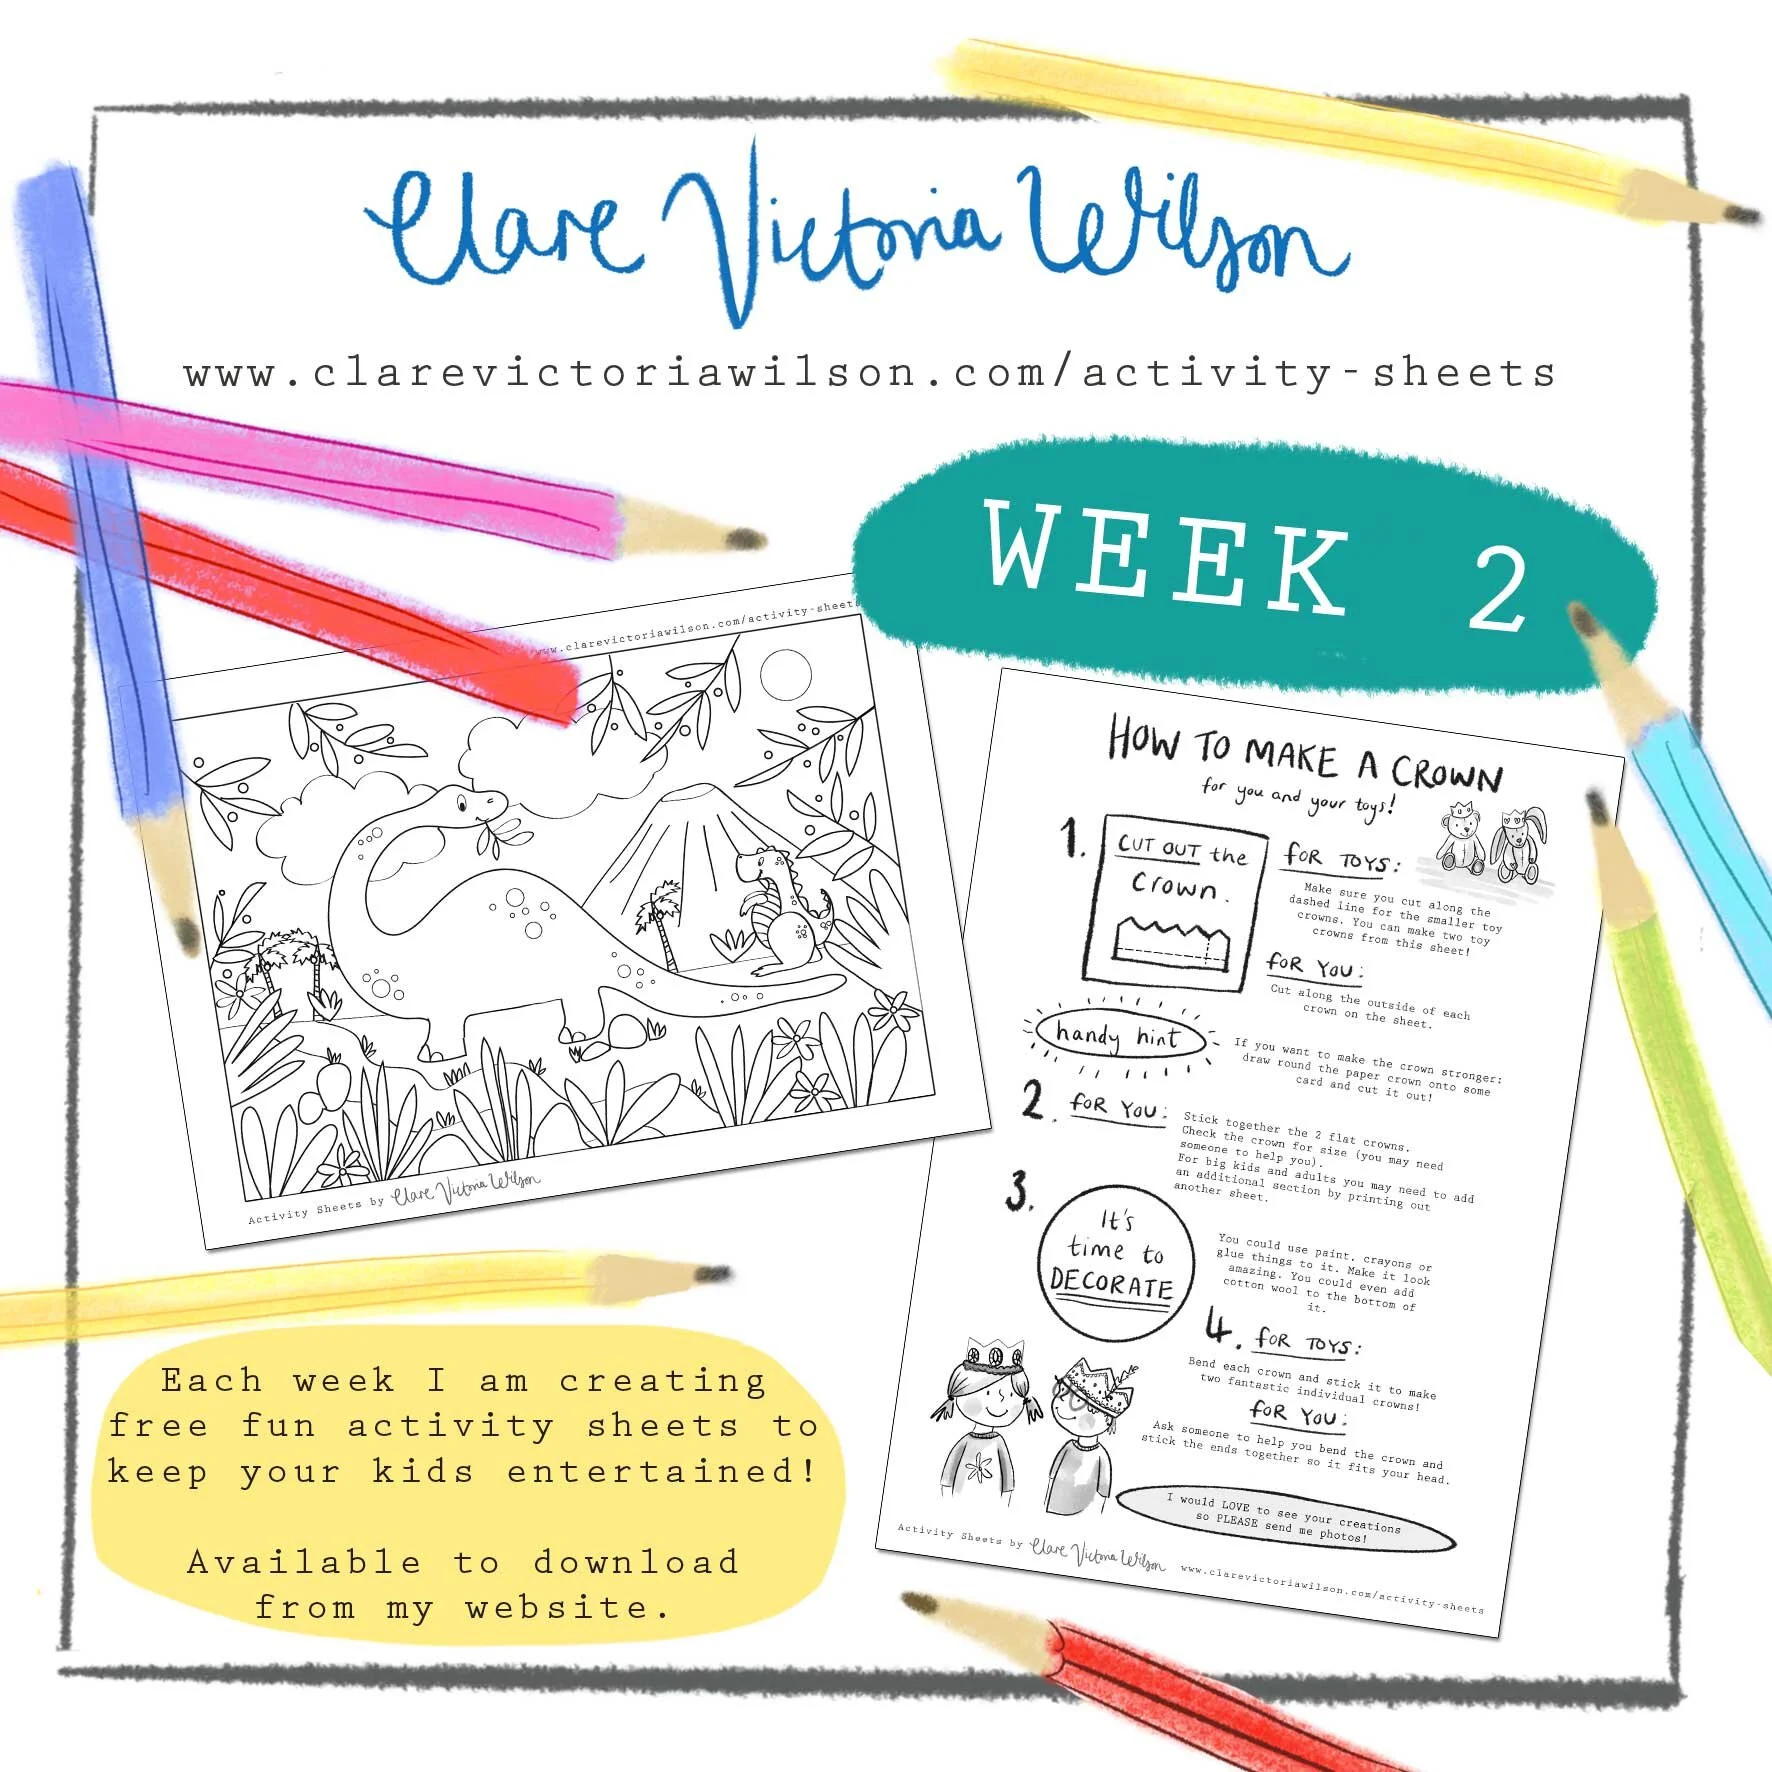 Clare Victoria Wilson
www.clarevictoriawilson.com/activity-sheets
WEEK 2
www.clarevictoriawilson.com/activity-sheets
Activity Sheets by Clare Victoria Wilson
HOW TO MAKE A CROWN
for you and your toys!
1.
CUT OUT the
Crown.
FOR TOYS:
Make sure you cut along the
dashed line for the smaller toy
crowns. You can make two toy
crowns from this sheet!
FOR YOU:
Cut along the outside of each
crown on the sheet.
handy hint
If you want to make the crown stronger:
draw round the paper crown onto some
card and cut it out!
2. FOR YOU:
Stick together the 2 flat crowns.
Check the crown for size (you may need
someone to help you).
For big kids and adults you may need to add
an additional section by printing out
another sheet.
3.
It's
time to
DECORATE
You could use paint, crayons or
glue things to it. Make it look
amazing. You could even add
cotton wool to the bottom of
it.
4. FOR TOYS:
Bend each crown and stick it to make
two fantastic individual crowns!
FOR YOU:
Ask someone to help you bend the crown and
stick the ends together so it fits your head.
I would LOVE to see your creations
so PLEASE send me photos!
Activity Sheets by Clare Victoria Wilson www.clarevictoriawilson.com/activity-sheets
Each week I am creating
free fun activity sheets to
keep your kids entertained!
Available to download
from my website.